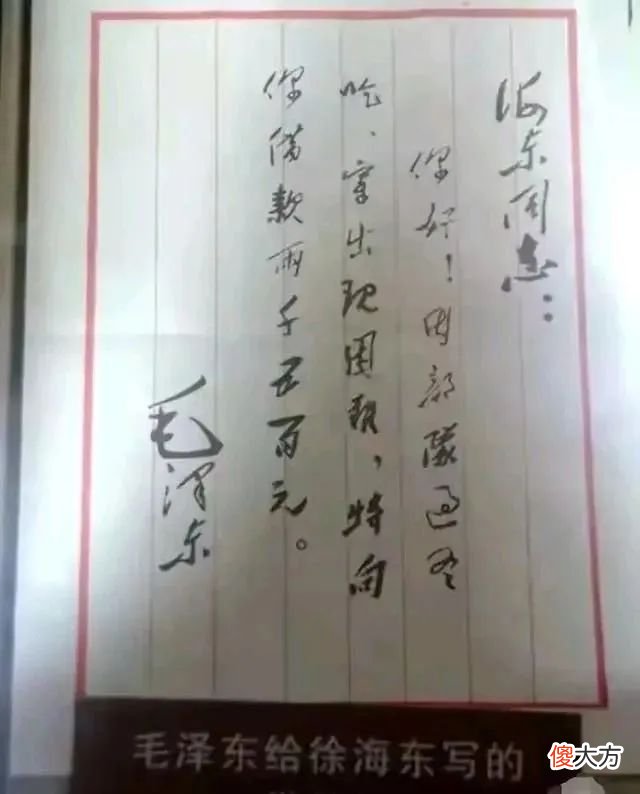 海东同志：
你好！因部队过冬
吃、穿出现困难，特向
你借款两千五百元。
毛泽东
毛泽东给徐海东写的
傻大方